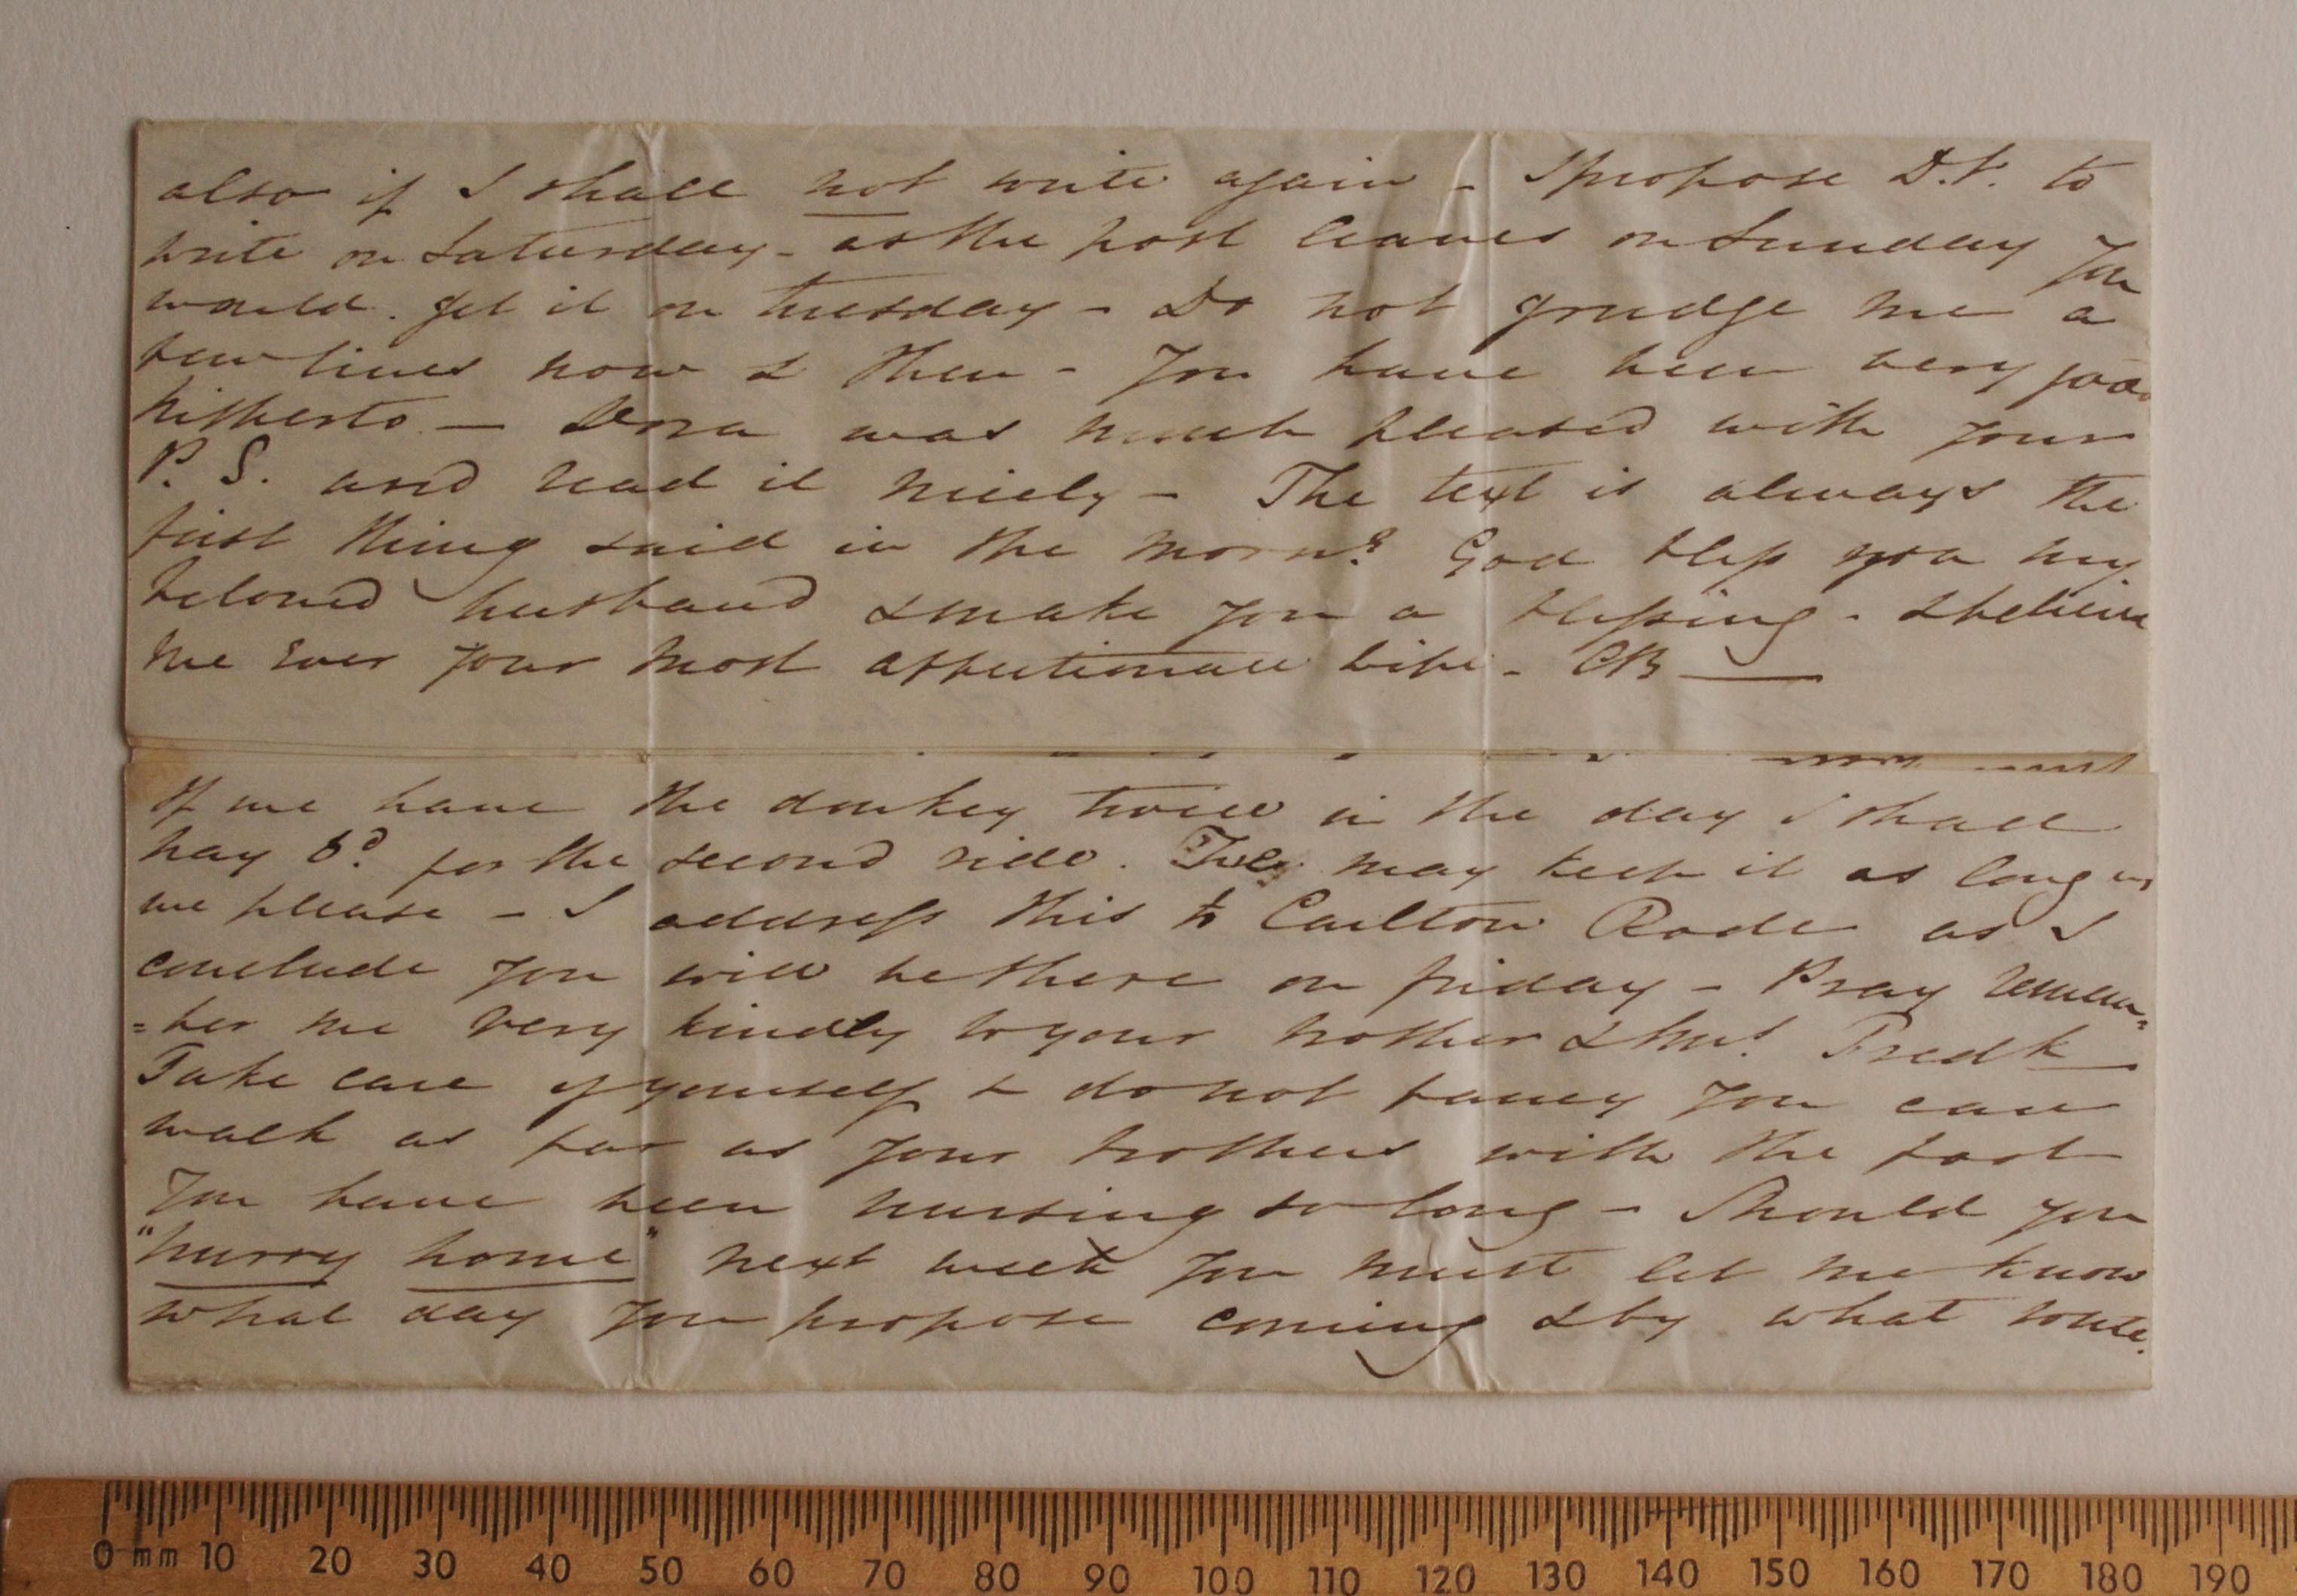 also if I shall not write again - I propose D.V. to
write on Saturday - as the post leaves on Sunday you
would get it on Tuesday - Do not grudge me a
few lines now & then - You have been very good
hitherto - Dora was much pleased with your
P.S. and read it nicely - The text is always the
first thing said in the morng. God bless you my
beloved husband & make you a blessing - & believe
me ever your most affectionate wife - CB
If we have the donkey twice in the day I shall
pay 6d. for the second ride. We may keep it as long as
we please - I address this to Carlton Rode as I
conclude you will be there on friday - Pray remem-
=ber me very kindly to your brother & Mrs. Fredk
Take care of yourself & do not fancy you can
walk as far as your brothers with the foot
you have been nursing so long - Should you
"hurry home" next week you must let me know
what day you propose coming & by what route.
0 mm 10 20 30 40 50 60 70 80 90 100 110 120 130 140 150 160 170 180 190